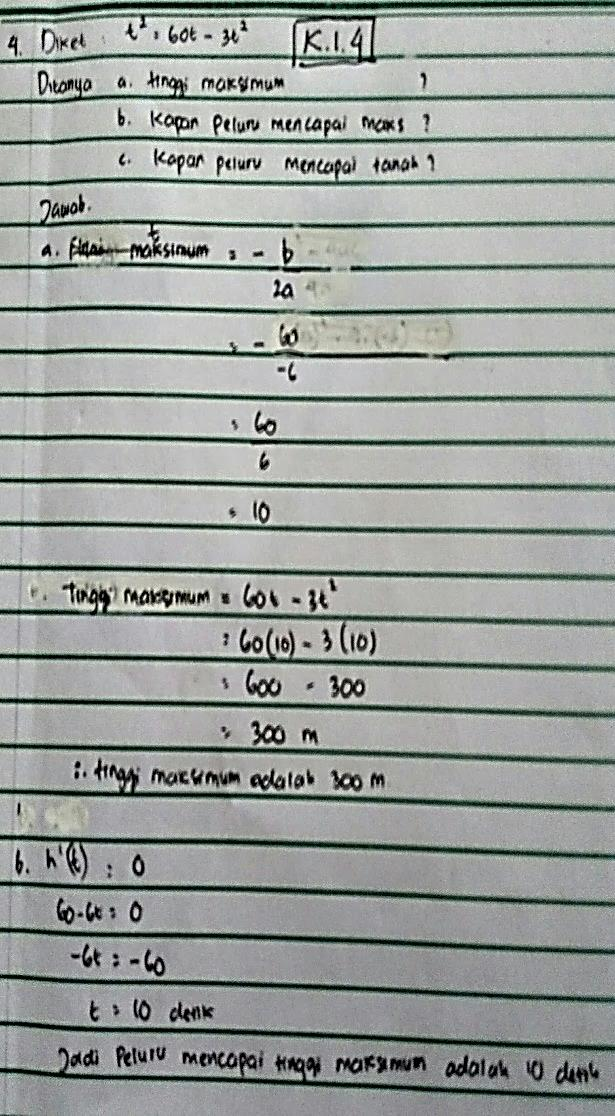 4. Diket : t² = 60t - 3t² K.1.4
Ditanya a. tinggi maksimum ?
b. Kapan Peluru mencapai maks ?
c. Kapan peluru mencapai tanah ?
Jawab.
a. t maksimum = - b
2a
= - 60
-6
= 60
6
= 10
Tinggi maksimum = 60t - 3t²
= 60(10) - 3(10)
= 600 - 300
= 300 m
∴ tinggi maksimum adalah 300 m
b. h'(t) = 0
60-6t = 0
-6t = -60
t = 10 detik
Jadi Peluru mencapai tinggi maksimum adalah 10 detik